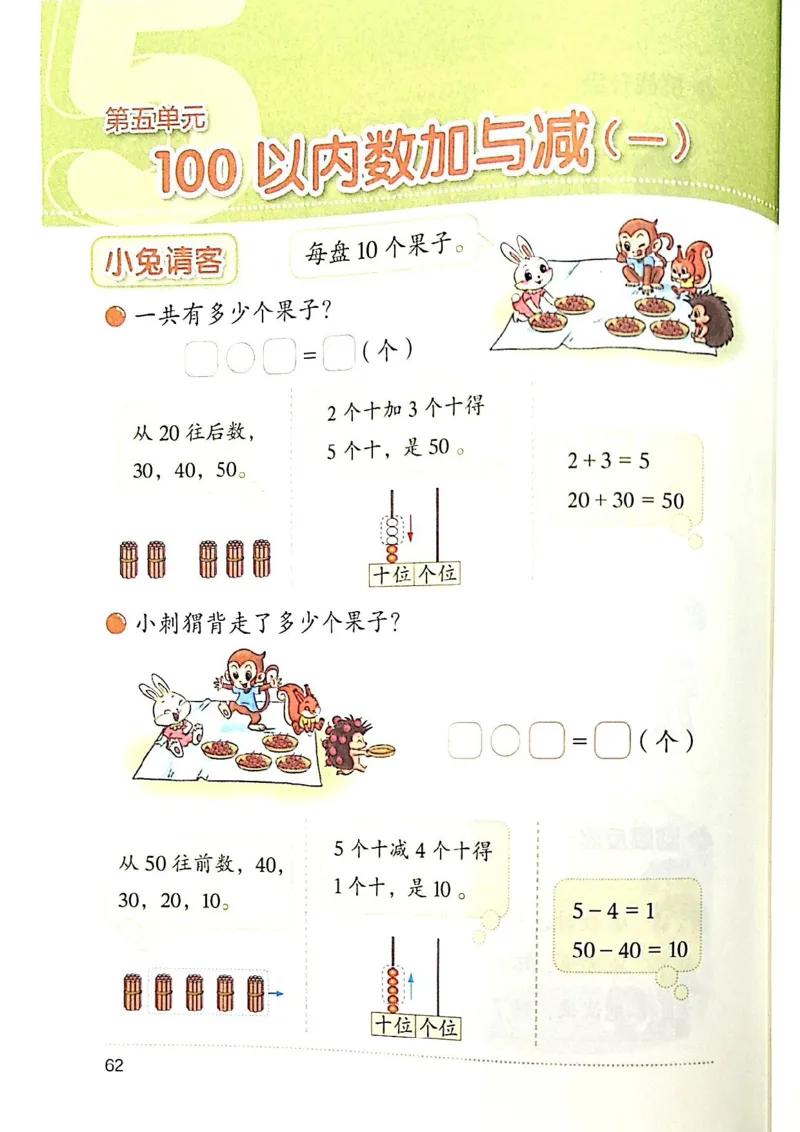 5
第五单元
100以内数加与减(一)
小兔请客
每盘10个果子。
一共有多少个果子?
=(个)
从20往后数,
30,40,50。
2个十加3个十得
5个十,是50。
2+3=5
20+30=50
十位 个位
小刺猬背走了多少个果子?
=(个)
从50往前数,40,
30,20,10。
5个十减4个十得
1个十,是10。
5-4=1
50-40=10
十位 个位
62